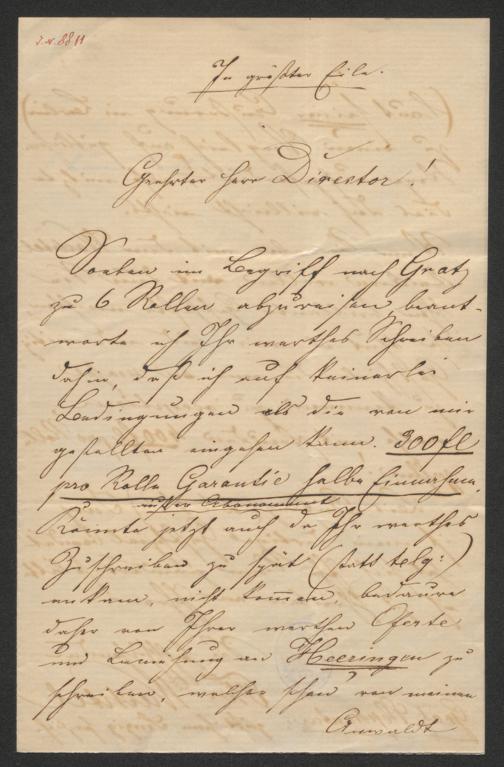 I.N. 8811
In größter Eile.
Geehrter Herr Director!
Soeben im Begriff nach Gratz
zu 6 Rollen abzureisen, beant-
worte ich Ihr werthes Schreiben
dahin, daß ich auf keinerlei
Bedingungen als die von mir
gestellten eingehen kann. 300 fl
pro Rolle Garantie halbe Einnahme,
außer Abonnement
Könnte jetzt auch da Ihr werthes
Zuschreiben zu spät (statt telg:)
ankam, nicht kommen, bedaure
daher von Ihrer werthen Oferte
und an Heeringen zu
schreiben, welcher schon von meinem
Anwaldt